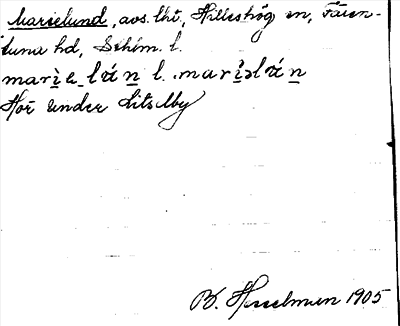 Marielund, avs. lht, Hilleshög sn, Fären-
tuna hd, Sthlm. l.
marìe_lán l. marìəlán
Hör under Litselby
B. Hesselman 1905